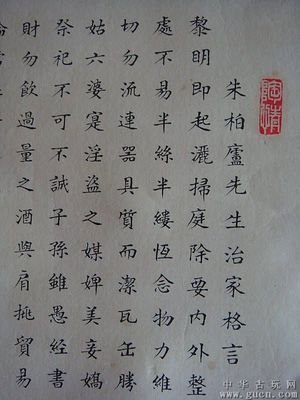 朱柏廬先生治家格言
黎明即起灑掃庭除要內外整
處不易半絲半縷恆念物力維
切勿流連器具質而潔瓦缶勝
姑六婆寔淫盜之媒婢美妾嬌
祭祀不可不誠子孫雖愚經書
財勿飲過量之酒與肩挑貿易
中华古玩网
www.gucn.com